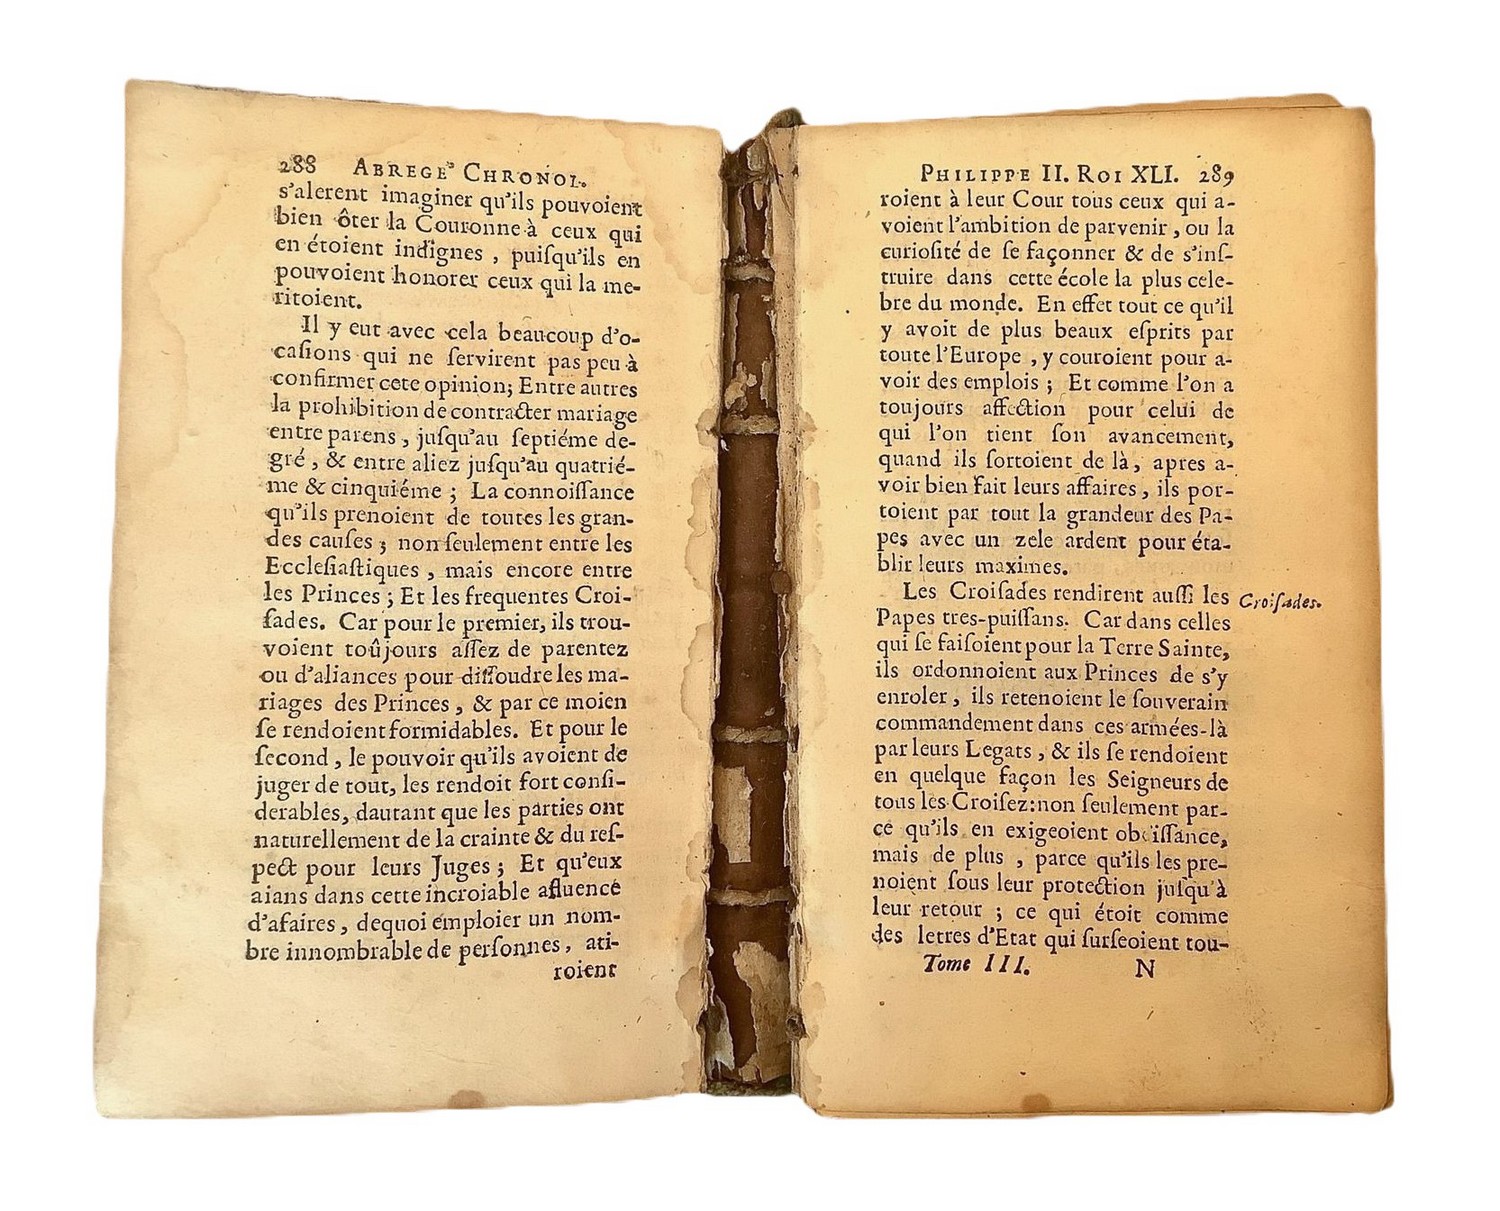 288 ABREGE' CHRONOL.
s'alerent imaginer qu'ils pouvoient
bien ôter la Couronne à ceux qui
en étoient indignes , puiſqu'ils en
pouvoient honorer ceux qui la me-
ritoient.
Il y eut avec cela beaucoup d'o-
caſions qui ne ſervirent pas peu à
confirmer cete opinion; Entre autres
la prohibition de contracter mariage
entre parens , juſqu'au ſeptiéme de-
gré , & entre aliez juſqu'au quatrié-
me & cinquiéme ; La connoiſſance
qu'ils prenoient de toutes les gran-
des cauſes ; non ſeulement entre les
Eccleſiaſtiques , mais encore entre
les Princes ; Et les frequentes Croi-
ſades. Car pour le premier, ils trou-
voient toûjours aſſez de parentez
ou d'aliances pour diſſoudre les ma-
riages des Princes , & par ce moien
ſe rendoient formidables. Et pour le
ſecond , le pouvoir qu'ils avoient de
juger de tout, les rendoit fort conſi-
derables, dautant que les parties ont
naturellement de la crainte & du reſ-
pect pour leurs Juges ; Et qu'eux
aians dans cette incroiable afluence
d'afaires, dequoi emploier un nom-
bre innombrable de perſonnes, ati-
roient
PHILIPPE II. ROI XLI. 289
roient à leur Cour tous ceux qui a-
voient l'ambition de parvenir , ou la
curioſité de ſe façonner & de s'inſ-
truire dans cette école la plus cele-
bre du monde. En effet tout ce qu'il
y avoit de plus beaux eſprits par
toute l'Europe , y couroient pour a-
voir des emplois ; Et comme l'on a
toujours affection pour celui de
qui l'on tient ſon avancement,
quand ils ſortoient de là , apres a-
voir bien fait leurs affaires , ils por-
toient par tout la grandeur des Pa-
pes avec un zele ardent pour éta-
blir leurs maximes.
Les Croiſades rendirent auſſi les Croiſades.
Papes tres-puiſſans. Car dans celles
qui ſe faiſoient pour la Terre Sainte,
ils ordonnoient aux Princes de s'y
enroler , ils retenoient le ſouverain
commandement dans ces armées-là
par leurs Legats , & ils ſe rendoient
en quelque façon les Seigneurs de
tous les Croiſez: non ſeulement par-
ce qu'ils en exigeoient obeïſſance,
mais de plus , parce qu'ils les pre-
noient ſous leur protection juſqu'à
leur retour ; ce qui étoit comme
des letres d'Etat qui ſurſeoient tou-
Tome III. N